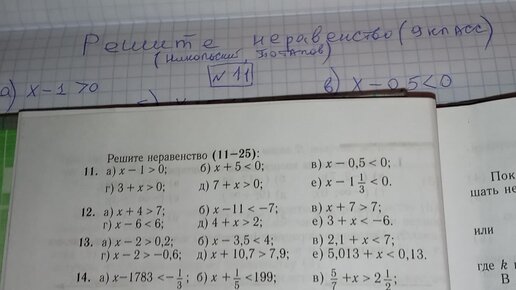 Решите неравенство (9 класс)
(Никольский, Потапов)
№ 11
а) x-1>0 в) x-0,5<0
Решите неравенство (11—25):
11. а) x-1>0; б) x+5<0; в) x-0,5<0;
г) 3+x>0; д) 7+x>0; е) x-1 1/3<0.
12. а) x+4>7; б) x-11<-7; в) x+7>7;
г) x-6<6; д) 4+x>2; е) 3+x<-6.
13. а) x-2>0,2; б) x-3,5<4; в) 2,1+x<7;
г) x-2>-0,6; д) x+10,7>7,9; е) 5,013+x<0,13.
14. а) x-1783<-1/3; б) x+1/5<199; в) 5/7+x>2 1/2;
Пок
шать не
или
где k
В